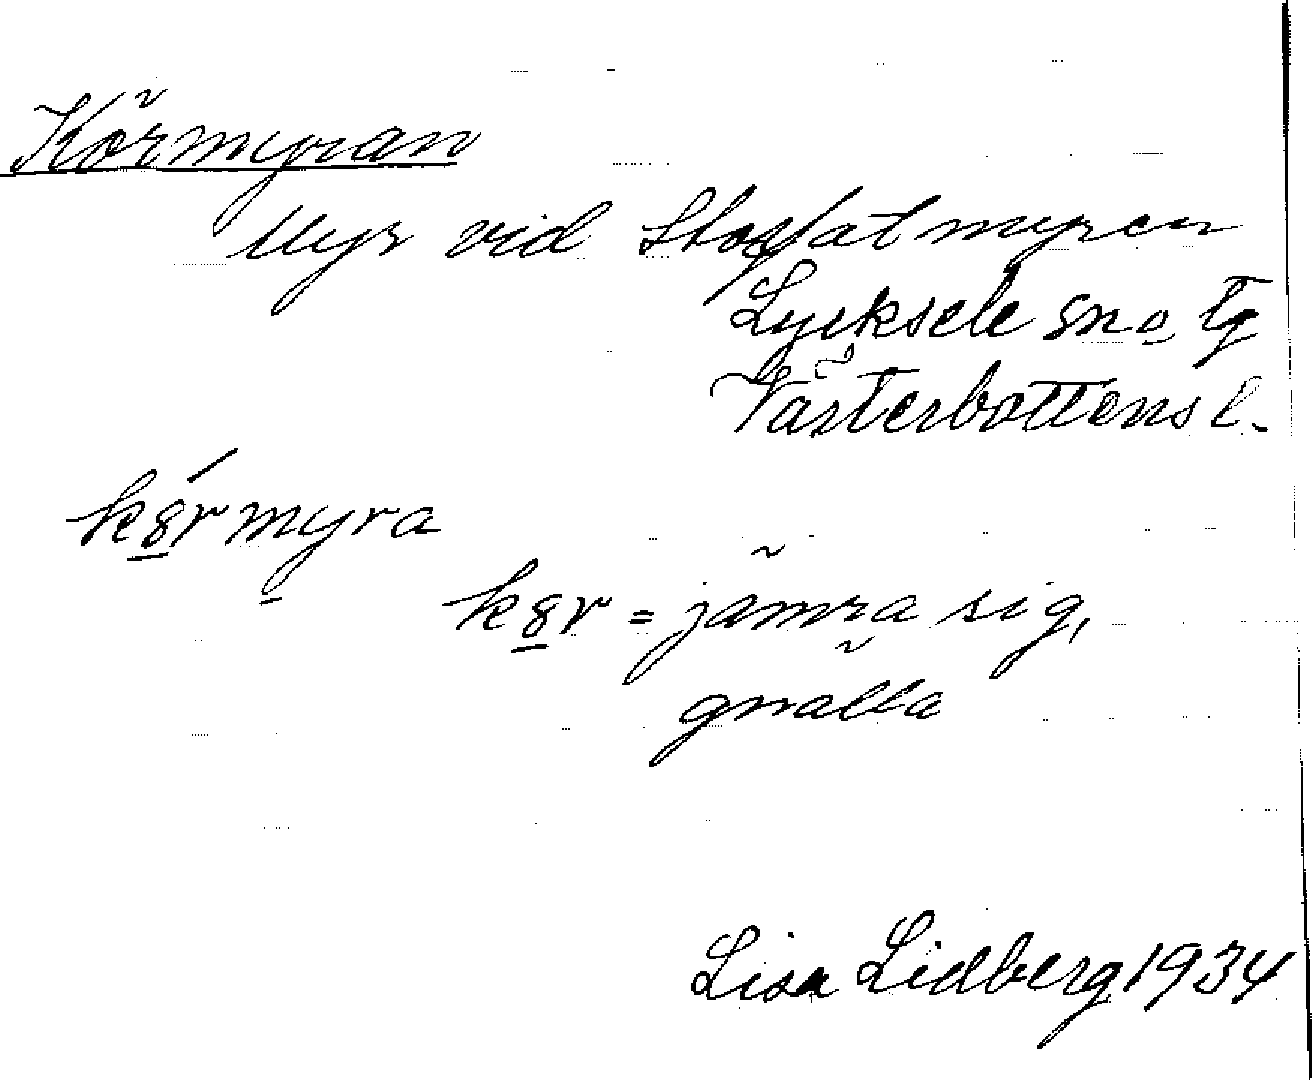 Körmyran
Myr vid Storfatmyren
Lycksele sn o tg
Västerbottens l.
körmyra
kör = jämra sig,
gnälla
Lisa Lidberg 1934